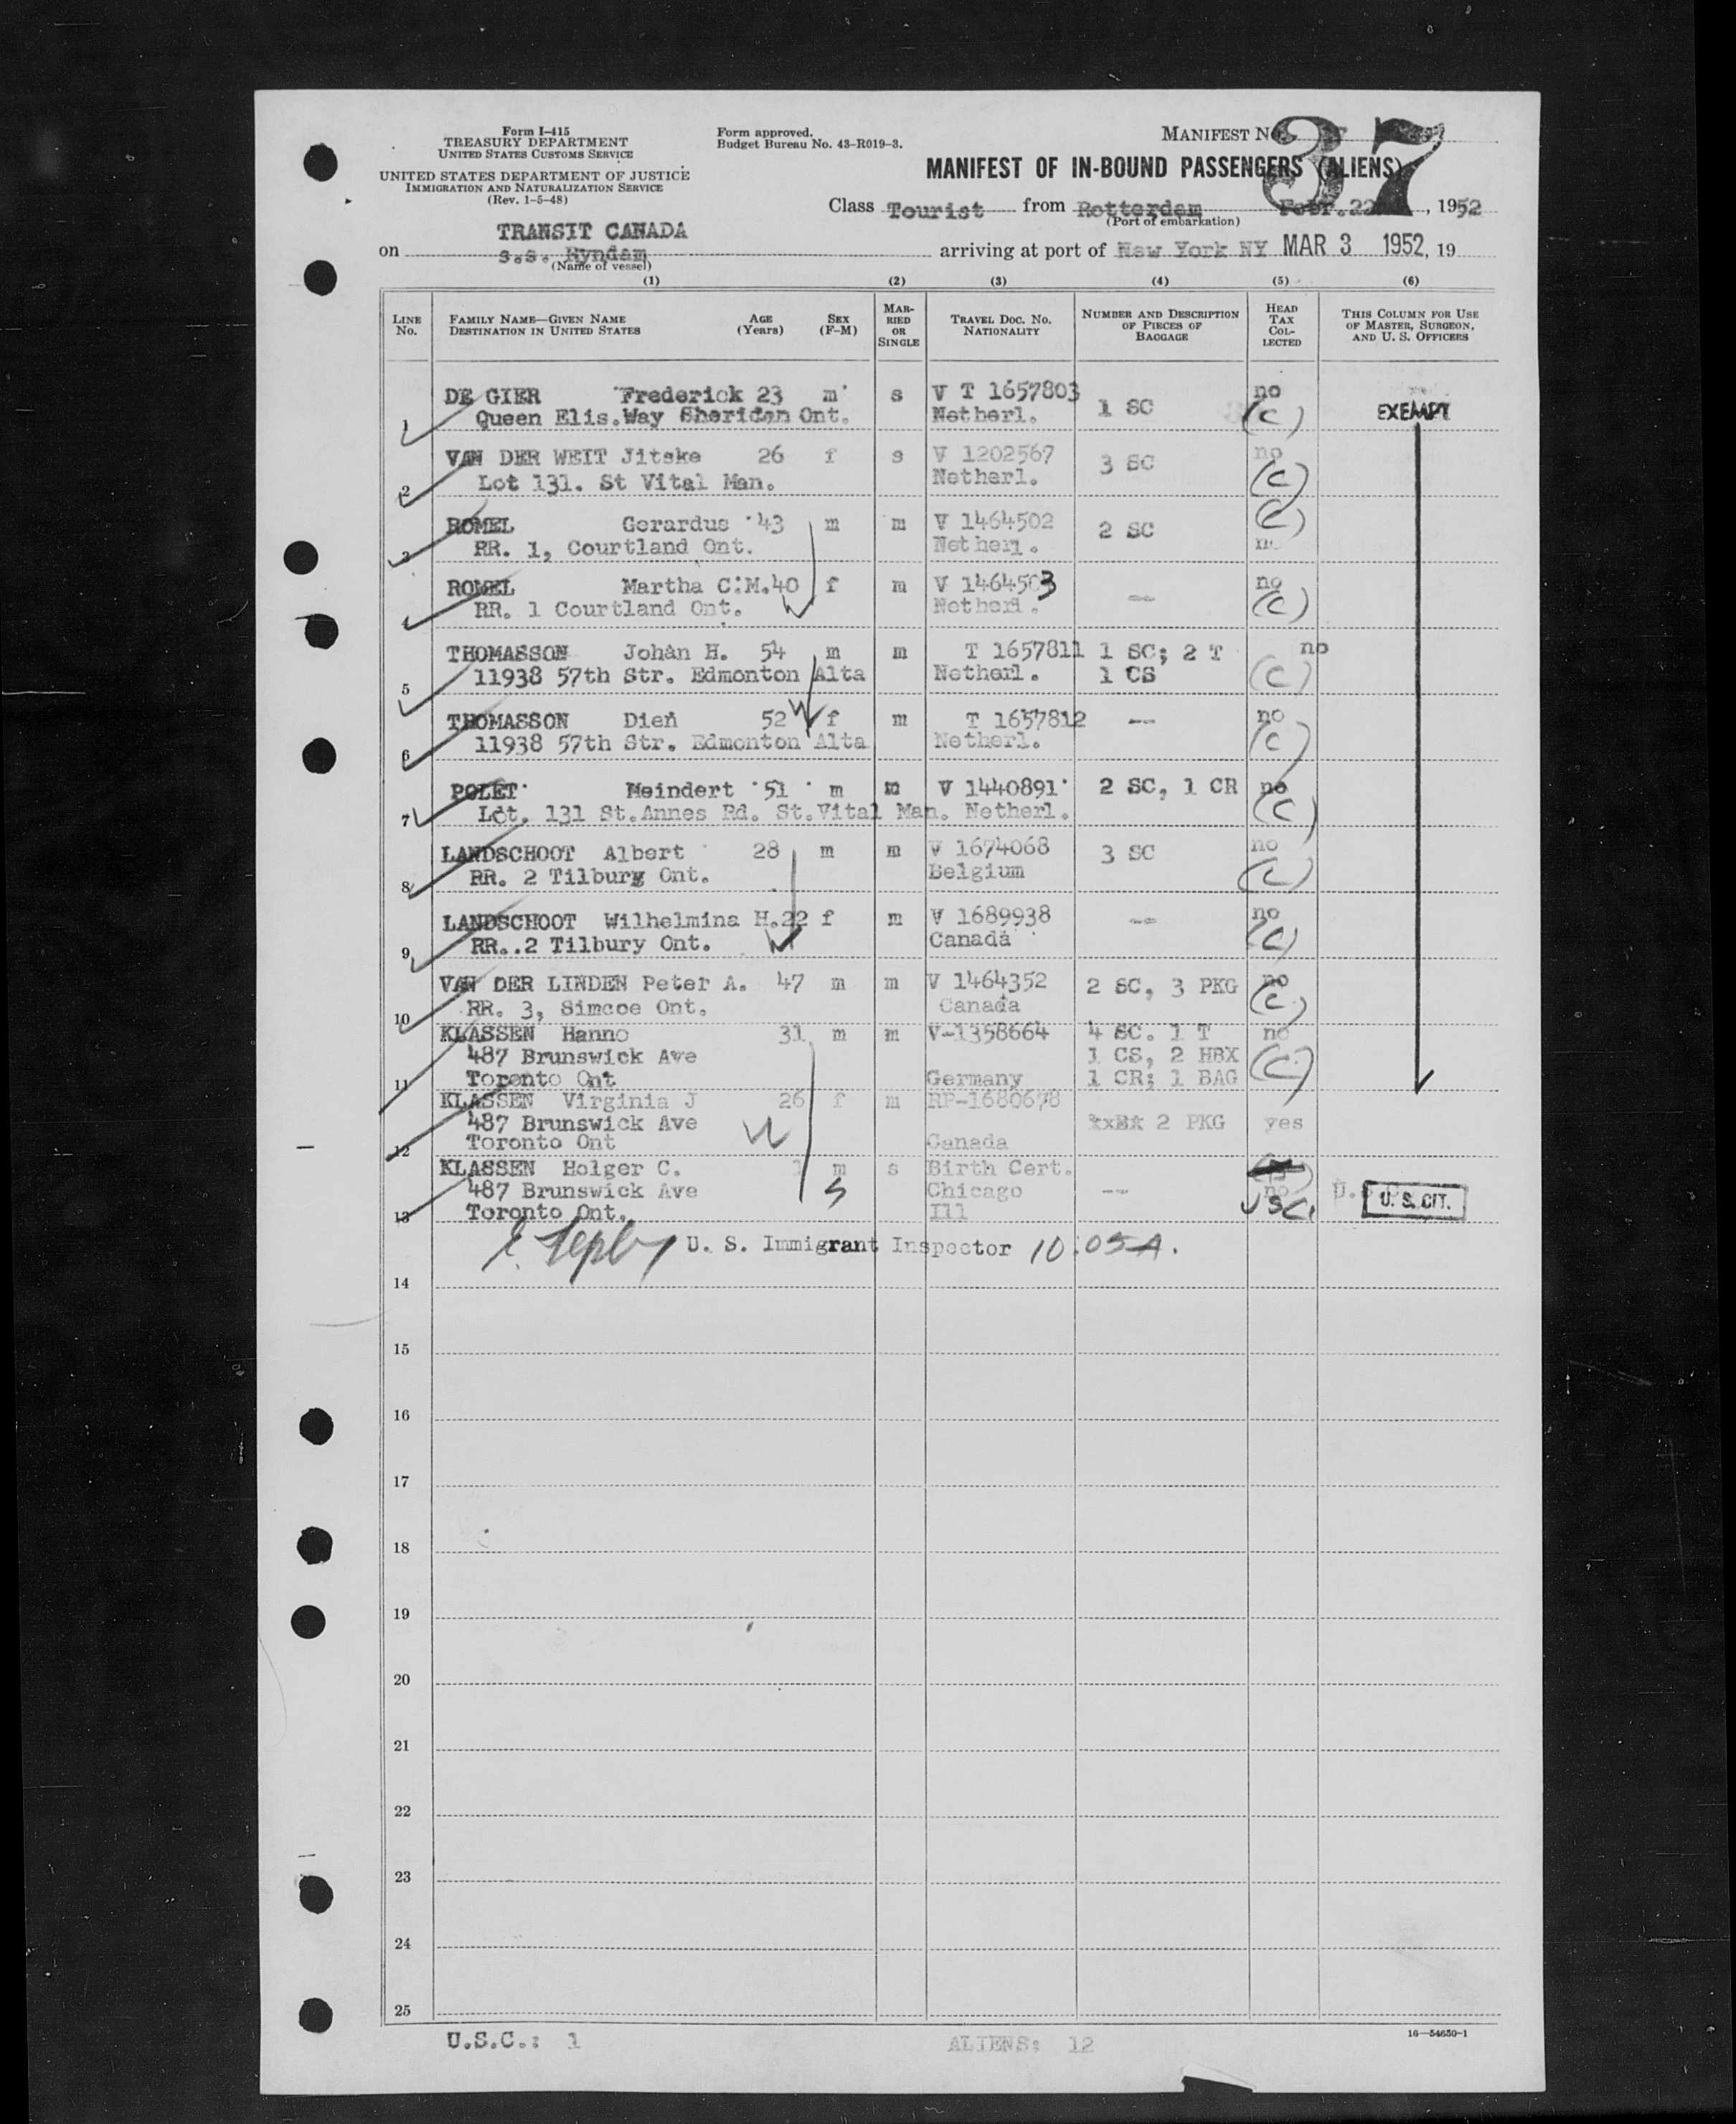 Form I-415
TREASURY DEPARTMENT
UNITED STATES CUSTOMS SERVICE
UNITED STATES DEPARTMENT OF JUSTICE
IMMIGRATION AND NATURALIZATION SERVICE
(Rev. 1-5-48)
Form approved.
Budget Bureau No. 43-R019-3.
MANIFEST No.
37
MANIFEST OF IN-BOUND PASSENGERS (ALIENS)
Class Tourist from Rotterdam Febr. 22, 1952
(Port of embarkation)
TRANSIT CANADA
on s.s. Ryndam arriving at port of New York NY MAR 3 1952, 19
(Name of vessel)
(1) (2) (3) (4) (5) (6)
LINE No. FAMILY NAME—GIVEN NAME DESTINATION IN UNITED STATES AGE (Years) SEX (F-M) MARRIED OR SINGLE TRAVEL DOC. NO. NATIONALITY NUMBER AND DESCRIPTION OF PIECES OF BAGGAGE HEAD TAX COLLECTED THIS COLUMN FOR USE OF MASTER, SURGEON, AND U. S. OFFICERS
DE GIER Frederick 23 m s V T 1657803 1 SC no EXEMPT
1 Queen Elis.Way Sheridan Ont. Netherl. (C)
VAN DER WEIT Jitske 26 f s V 1202567 3 SC no
2 Lot 131. St Vital Man. Netherl. (C)
ROMEL Gerardus 43 m m V 1464502 2 SC (C)
3 RR. 1, Courtland Ont. Netherl. no
ROMEL Martha C.M. 40 f m V 1464503 -- no
4 RR. 1 Courtland Ont. Netherl. (C)
THOMASSON Johan H. 54 m m T 1657811 1 SC; 2 T no
5 11938 57th Str. Edmonton Alta Netherl. 1 CS (C)
THOMASSON Dien 52 f m T 1657812 -- no
6 11938 57th Str. Edmonton Alta Netherl. (C)
POLET Meindert 51 m m V 1440891 2 SC, 1 CR no
7 Lot. 131 St.Annes Rd. St.Vital Man. Netherl. (C)
LANDSCHOOT Albert 28 m m V 1674068 3 SC no
8 RR. 2 Tilbury Ont. Belgium (C)
LANDSCHOOT Wilhelmina H. 22 f m V 1689938 -- no
9 RR..2 Tilbury Ont. Canada (C)
VAN DER LINDEN Peter A. 47 m m V 1464352 2 SC, 3 PKG no
10 RR. 3, Simcoe Ont. Canada (C)
KLASSEN Hanno 31 m m V-1358664 4 SC. 1 T no
487 Brunswick Ave 1 CS, 2 HBX
11 Toronto Ont Germany 1 CR; 1 BAG (C)
KLASSEN Virginia J 26 f m RP-1680678
487 Brunswick Ave 2 PKG yes
12 Toronto Ont Canada
KLASSEN Holger C. m s Birth Cert.
487 Brunswick Ave S Chicago -- no U.S.C. U. S. CIT.
13 Toronto Ont. Ill USC.
U. S. Immigrant Inspector 10:05 A.
14
15
16
17
18
19
20
21
22
23
24
25
16—54650-1
U.S.C.: 1 ALIENS: 12